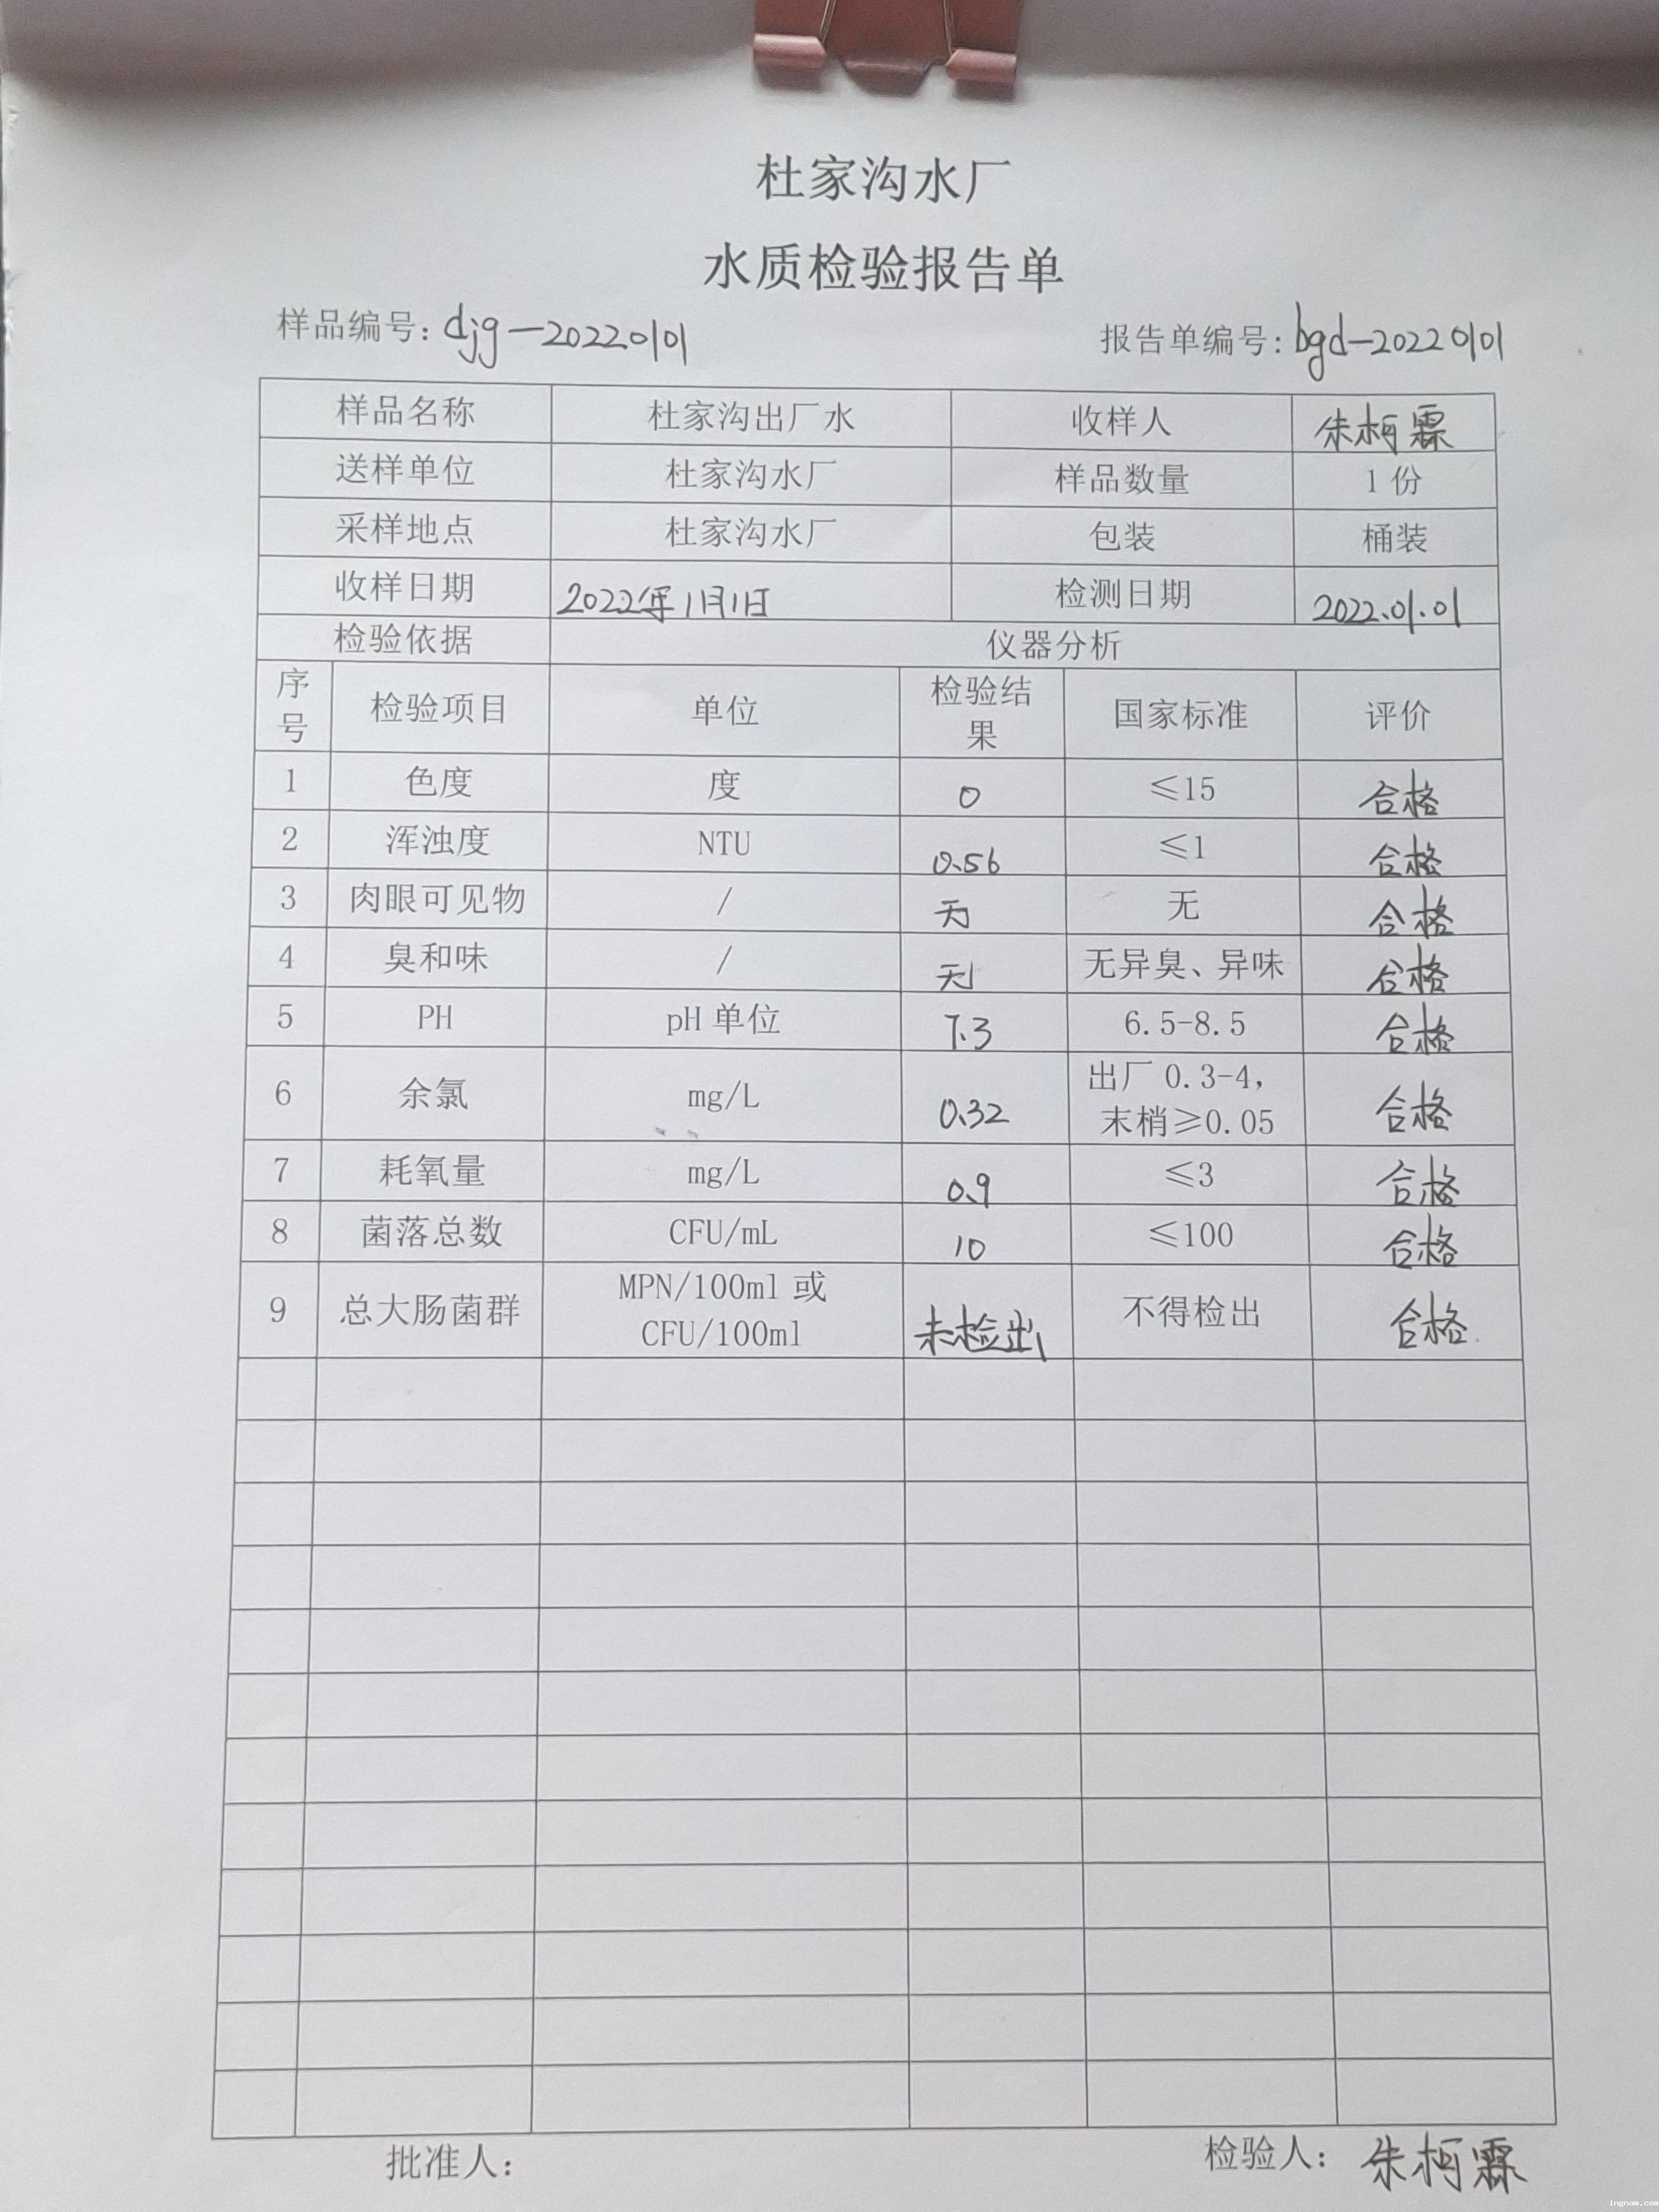 杜家沟水厂
水质检验报告单
样品编号: djg-20220101 报告单编号: bgd-20220101
样品名称 杜家沟出厂水 收样人 朱柯霖
送样单位 杜家沟水厂 样品数量 1份
采样地点 杜家沟水厂 包装 桶装
收样日期 2022年1月1日 检测日期 2022.01.01
检验依据 仪器分析
序号 检验项目 单位 检验结果 国家标准 评价
1 色度 度 0 ≤15 合格
2 浑浊度 NTU 0.56 ≤1 合格
3 肉眼可见物 / 无 无 合格
4 臭和味 / 无 无异臭、异味 合格
5 PH pH单位 7.3 6.5-8.5 合格
6 余氯 mg/L 0.32 出厂0.3-4，末梢≥0.05 合格
7 耗氧量 mg/L 0.9 ≤3 合格
8 菌落总数 CFU/mL 10 ≤100 合格
9 总大肠菌群 MPN/100ml或CFU/100ml 未检出 不得检出 合格
批准人: 检验人: 朱柯霖
ingnam.com